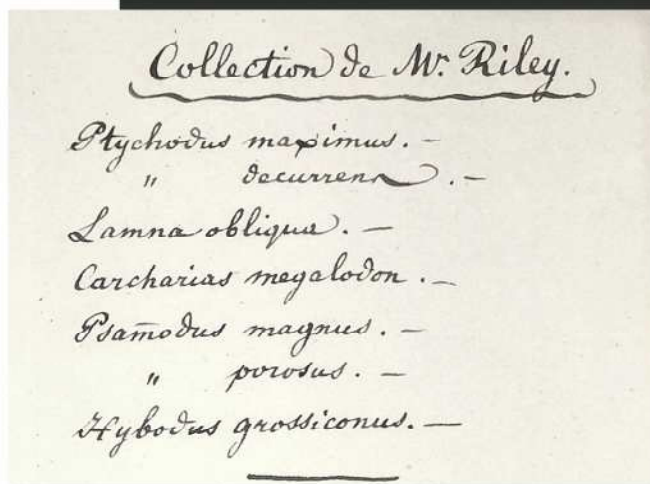 Collection de Mr. Riley.
Ptychodus maximus. —
" decurrens. —
Lamna obliqua. —
Carcharias megalodon. —
Psam̄odus magnus. —
" porosus. —
Hybodus grossiconus. —